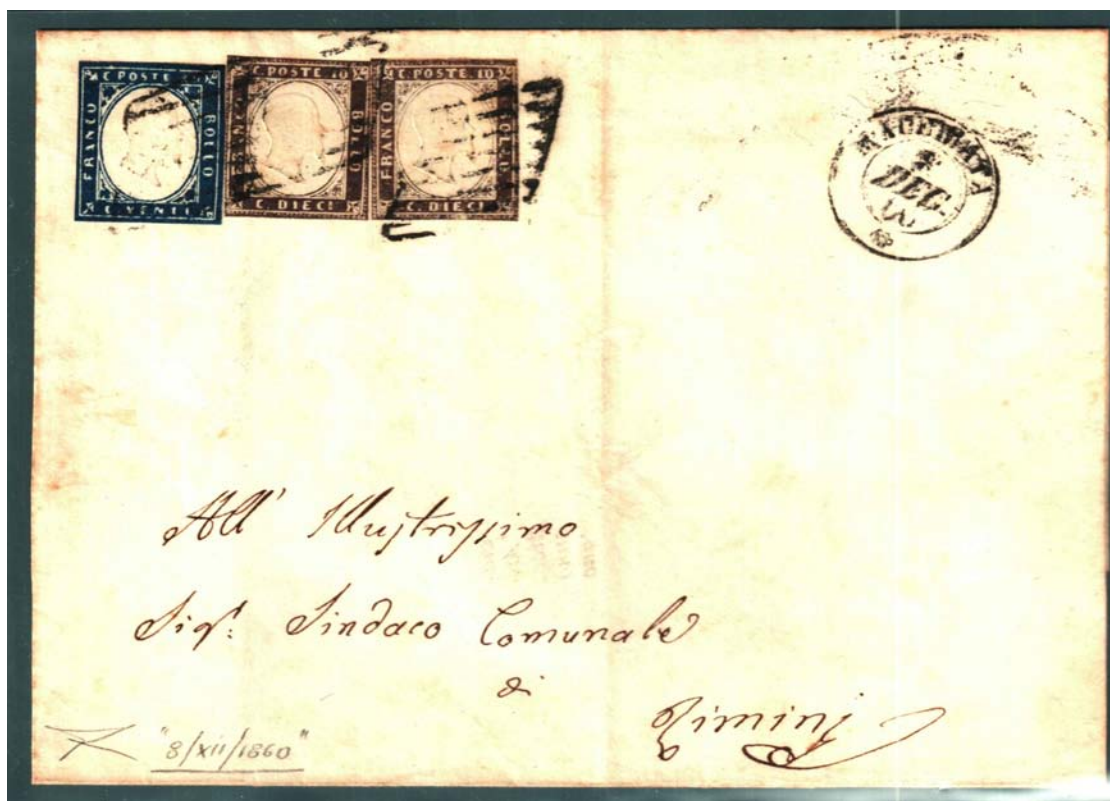 C. POSTE
FRANCO
BOLLO
C. VENTI
C. POSTE 10
FRANCO
BOLLO
C. DIECI
C. POSTE 10
FRANCO
C. DIECI
MACERATA
DEC.
All' Illustrissimo
Sigr: Sindaco Comunale
di
Rimini
"8/XII/1860"